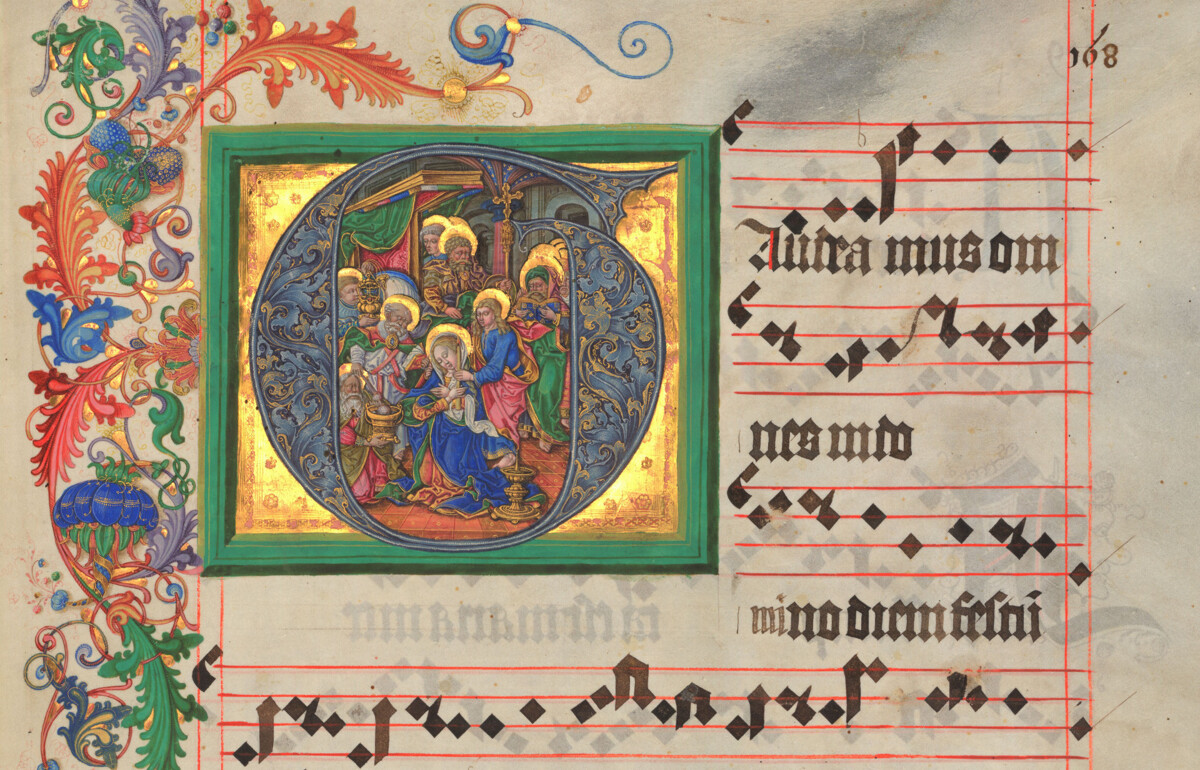 168
Autea mus om
nes in do
mino diem festū